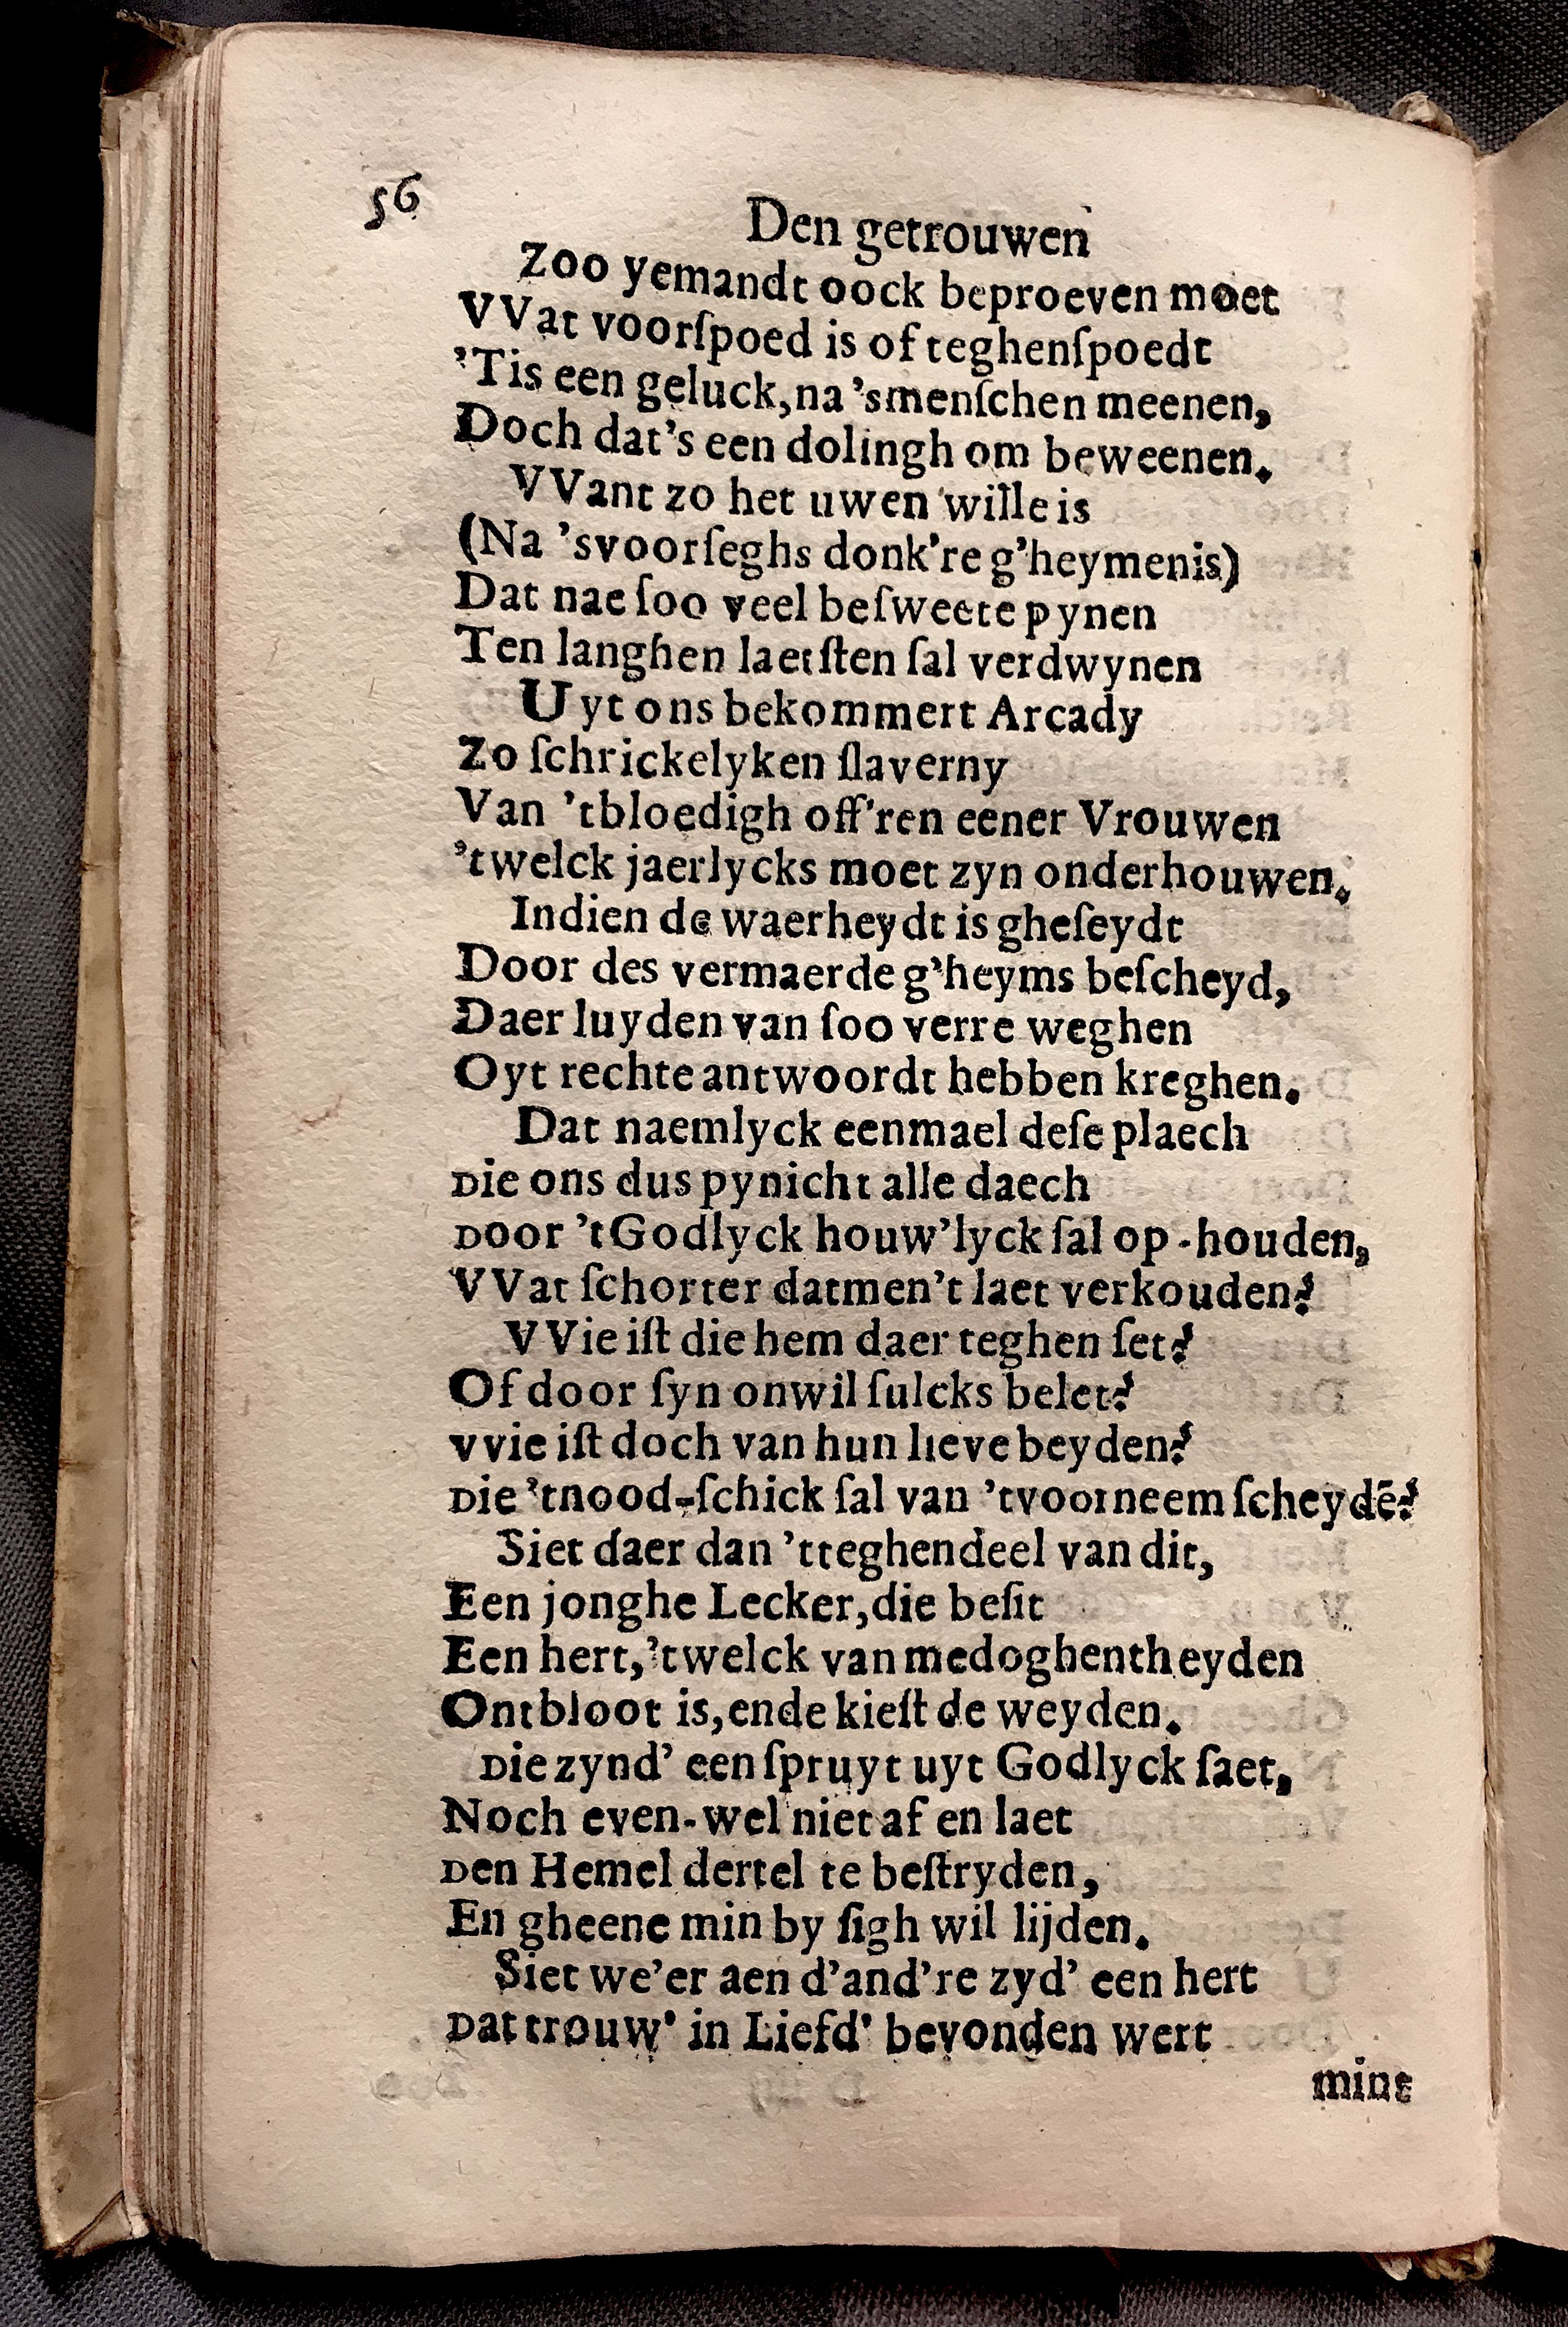 56
Den getrouwen
Zoo yemandt oock beproeven moet
VVat voorſpoed is of teghenſpoedt
'Tis een geluck, na 'smenſchen meenen,
Doch dat's een dolingh om beweenen.
VVant zo het uwen wille is
(Na 'svoorſeghs donk're g'heymenis)
Dat nae ſoo veel beſweete pynen
Ten langhen laetſten ſal verdwynen
Uyt ons bekommert Arcady
Zo ſchrickelyken ſlaverny
Van 'tbloedigh off'ren eener Vrouwen
'twelck jaerlycks moet zyn onderhouwen.
Indien de waerheydt is gheſeydt
Door des vermaerde g'heyms beſcheyd,
Daer luyden van ſoo verre weghen
Oyt rechte antwoordt hebben kreghen.
Dat naemlyck eenmael deſe plaech
Die ons dus pynicht alle daech
Door 'tGodlyck houw'lyck ſal op-houden,
VVat ſchorter datmen't laet verkouden?
VVie iſt die hem daer teghen ſet?
Of door ſyn onwil ſulcks belet?
vvie iſt doch van hun lieve beyden?
Die 'tnood-ſchick ſal van 'tvoorneem ſcheydē?
Siet daer dan 'tteghendeel van dit,
Een jonghe Lecker, die beſit
Een hert, 'twelck van medoghentheyden
Ontbloot is, ende kieſt de weyden.
Die zynd' een ſpruyt uyt Godlyck ſaet,
Noch even-wel niet af en laet
Den Hemel dertel te beſtryden,
En gheene min by ſigh wil lijden.
Siet we'er aen d'and're zyd' een hert
Dat trouw' in Liefd' bevonden wert
mint